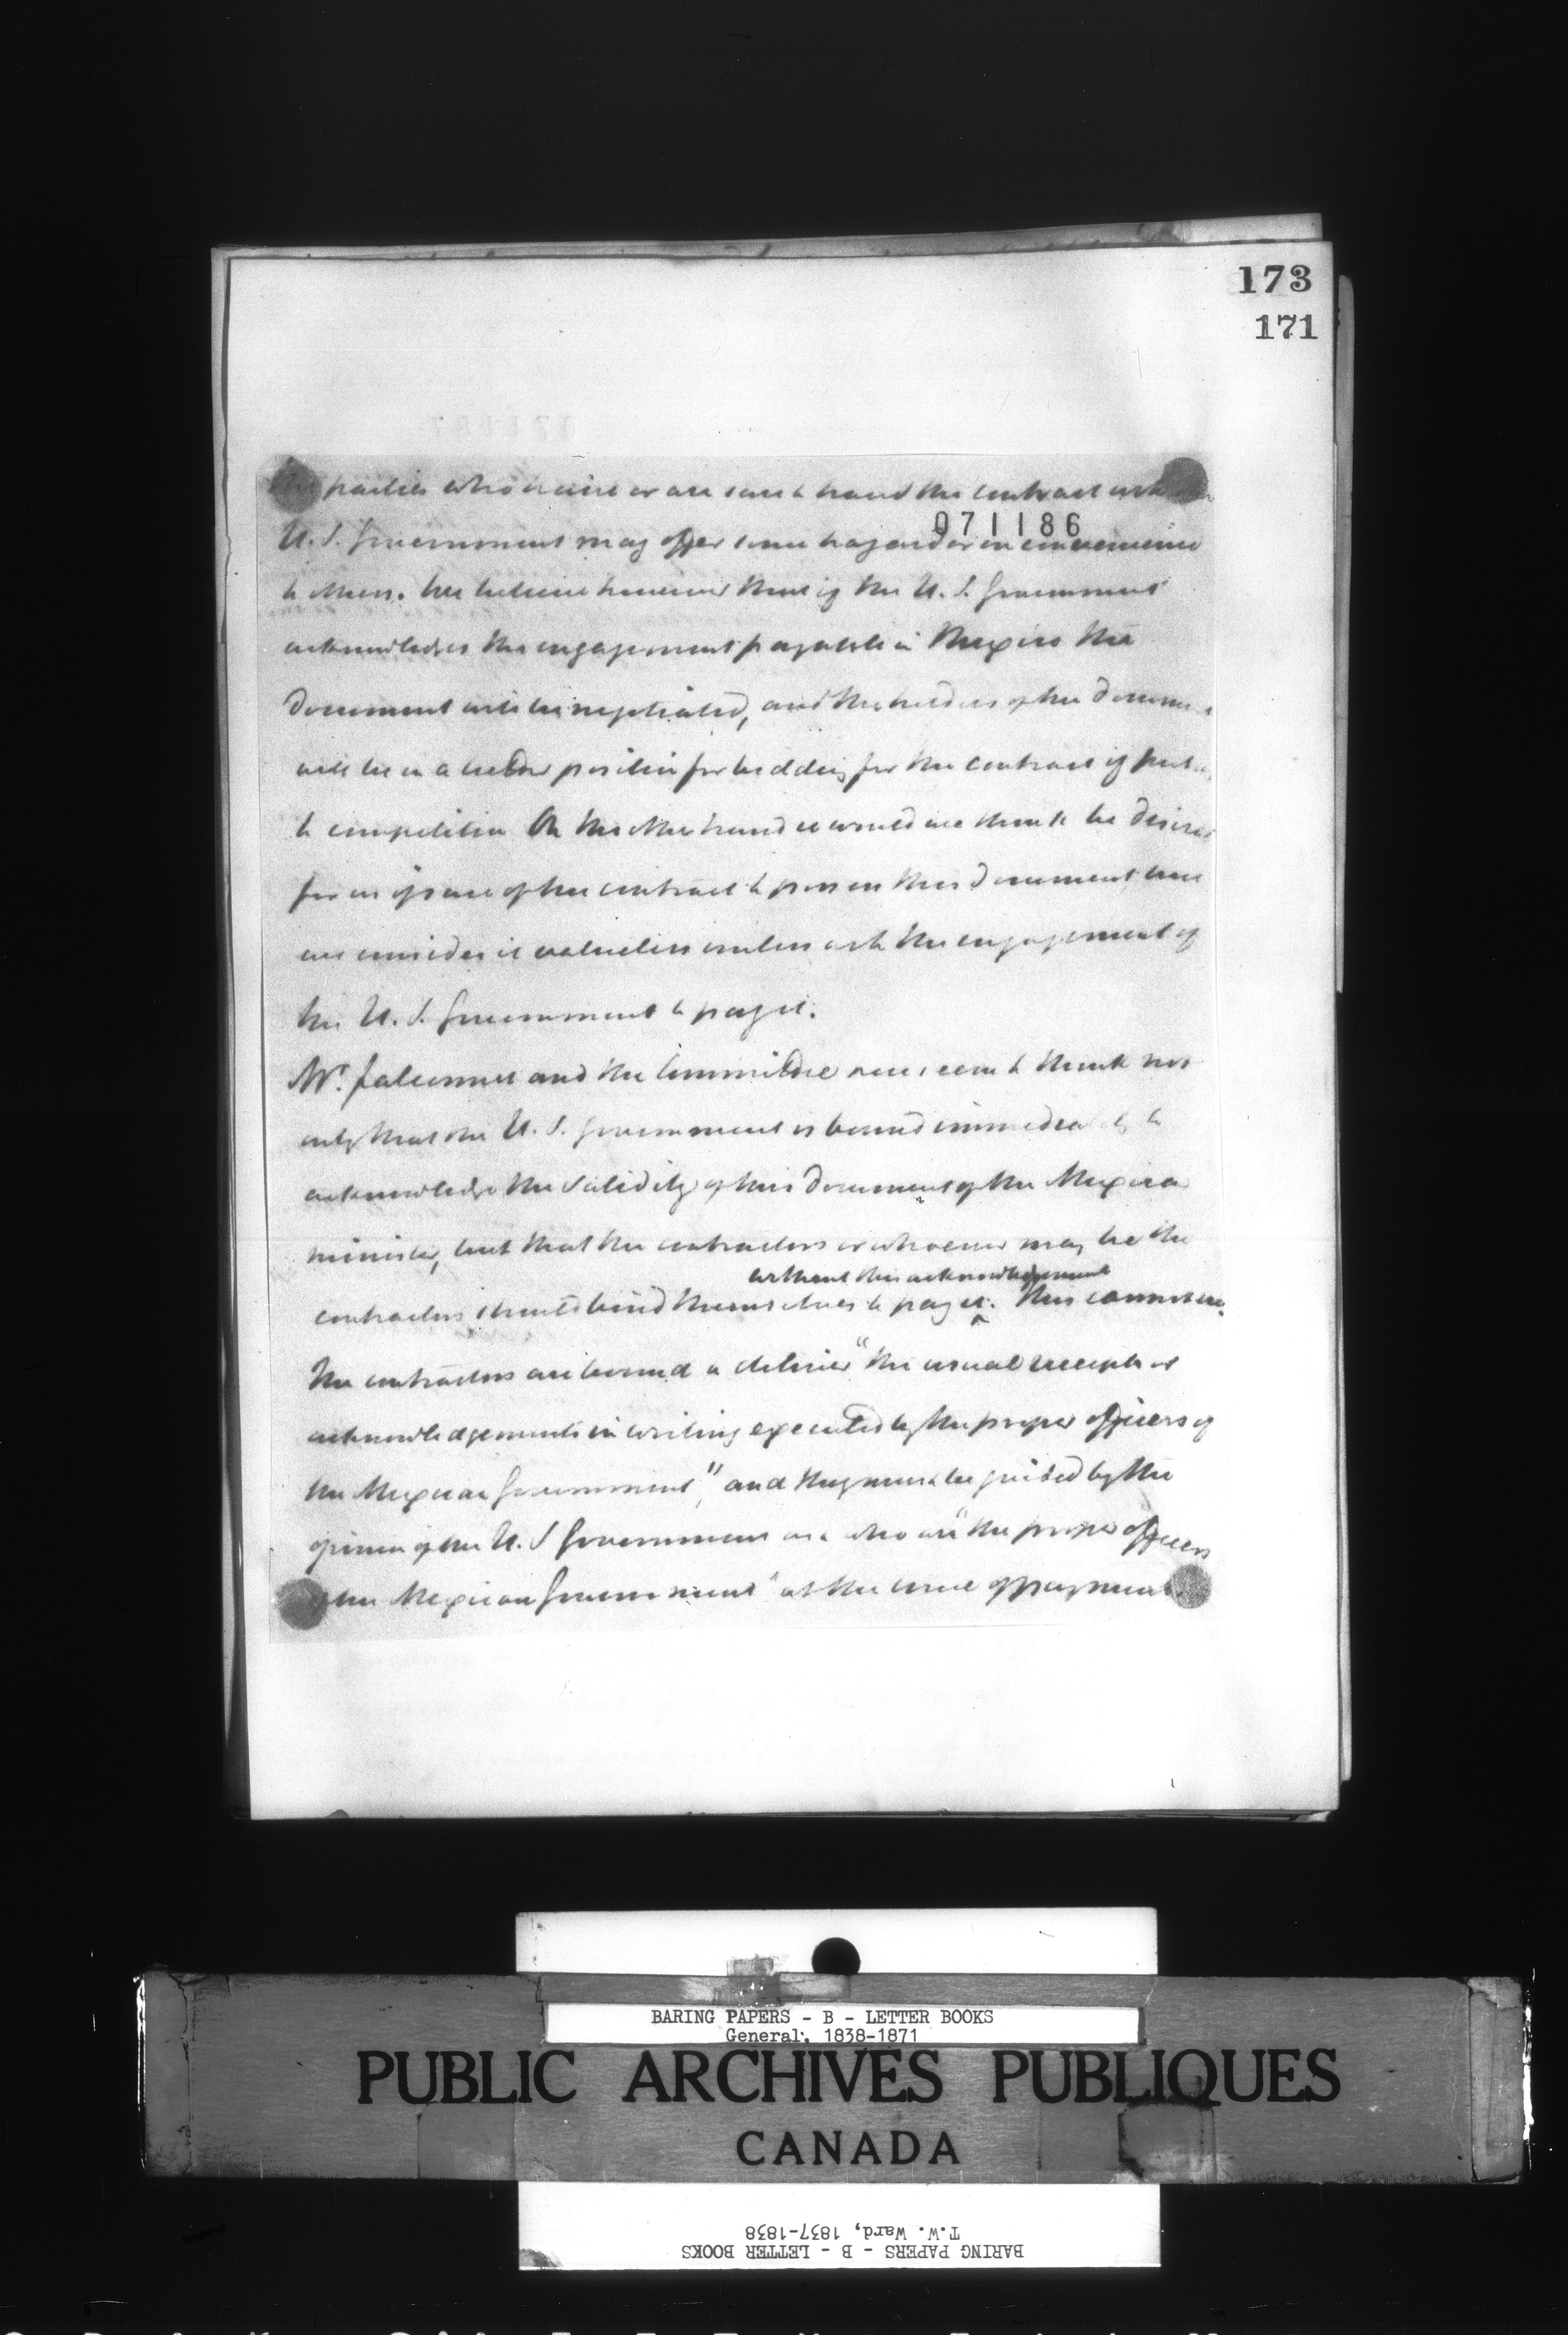 173
171
the parties who have or are sure to have the contract with the
071186
U.S. Government may offer some hazard or inconvenience
to them. We believe however that if the U.S. Government
acknowledges the engagement payable in Mexico the
Document will be negotiated, and the holders of the Docum
will be in a better position for bidding for the contract if put
to competition On the other hand it would we think be desira
for us if sure of the contract to possess this document but
we consider it valueless unless with the engagement of
the U.S. Government to pay it.
Mr. Falconnet and the Committee now seem to think not
only that the U.S. Government is bound immediately to
acknowledge the validity of this Document of the Mexican
minister, but that the contractors or whoever may be the
without this acknowledgement
contractors should bind themselves to pay it. This cannot be.
The contractors are bound to deliver "the usual receipts or
acknowledgements in writing executed by the proper officers of
the Mexican Government", and they must be guided by the
opinion of the U.S Government as to who are "the proper officers
of the Mexican Government" at the time of payment
BARING PAPERS - B - LETTER BOOKS
General, 1838-1871
PUBLIC ARCHIVES PUBLIQUES
CANADA
T.W. Ward, 1837-1838
BARING PAPERS - B - LETTER BOOKS